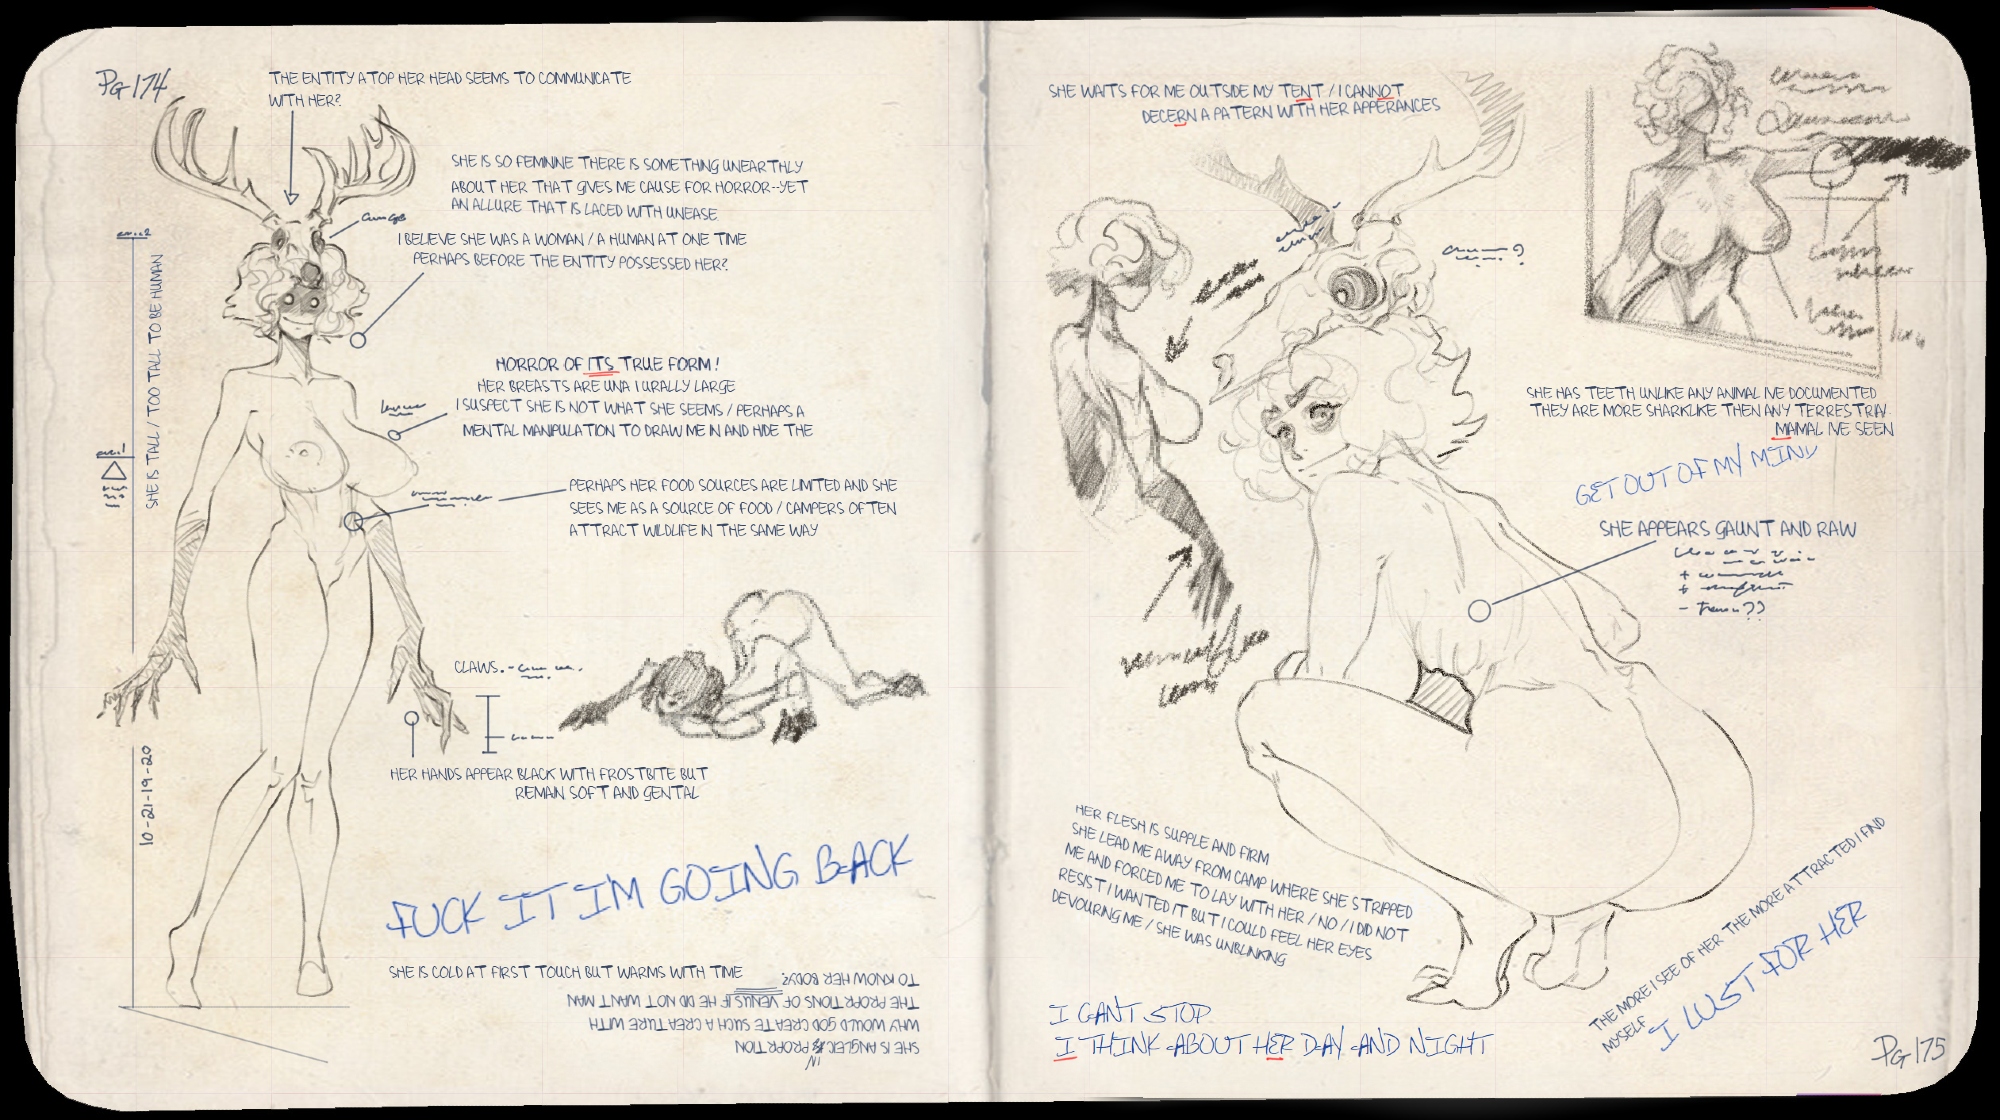 PG 174
THE ENTITY ATOP HER HEAD SEEMS TO COMMUNICATE
WITH HER?
SHE IS SO FEMININE THERE IS SOMETHING UNEARTHLY
ABOUT HER THAT GIVES ME CAUSE FOR HORROR--YET
AN ALLURE THAT IS LACED WITH UNEASE
I BELIEVE SHE WAS A WOMAN / A HUMAN AT ONE TIME
PERHAPS BEFORE THE ENTITY POSSESSED HER?
SHE IS TALL / TOO TALL TO BE HUMAN
HORROR OF ITS TRUE FORM!
HER BREASTS ARE UNATURALLY LARGE
I SUSPECT SHE IS NOT WHAT SHE SEEMS / PERHAPS A
MENTAL MANIPULATION TO DRAW ME IN AND HIDE THE
PERHAPS HER FOOD SOURCES ARE LIMITED AND SHE
SEES ME AS A SOURCE OF FOOD / CAMPERS OFTEN
ATTRACT WILDLIFE IN THE SAME WAY
CLAWS.
HER HANDS APPEAR BLACK WITH FROSTBITE BUT
REMAIN SOFT AND GENTAL
10-21-19-20
FUCK IT I'M GOING BACK
SHE IS COLD AT FIRST TOUCH BUT WARMS WITH TIME
SHE IS ANGLEIC IN PROPRTION
WHY WOULD GOD CREATE SUCH A CREATURE WITH
THE PROPRTIONS OF VENUS IF HE DID NOT WANT MAN
TO KNOW HER BODY?
SHE WAITS FOR ME OUTSIDE MY TENT / I CANNOT
DECERN A PATERN WITH HER APPERANCES
SHE HAS TEETH UNLIKE ANY ANIMAL IVE DOCUMENTED
THEY ARE MORE SHARKLIKE THEN ANY TERRESTRIAL
MAMAL IVE SEEN
GET OUT OF MY MIND
SHE APPEARS GAUNT AND RAW
HER FLESH IS SUPPLE AND FIRM
SHE LEAD ME AWAY FROM CAMP WHERE SHE STRIPPED
ME AND FORCED ME TO LAY WITH HER / NO / I DID NOT
RESIST I WANTED IT BUT I COULD FEEL HER EYES
DEVOURING ME / SHE WAS UNBLINKING
I CANT STOP
I THINK ABOUT HER DAY AND NIGHT
THE MORE I SEE OF HER THE MORE ATTRACTED I FIND
MYSELF
I LUST FOR HER
PG 175